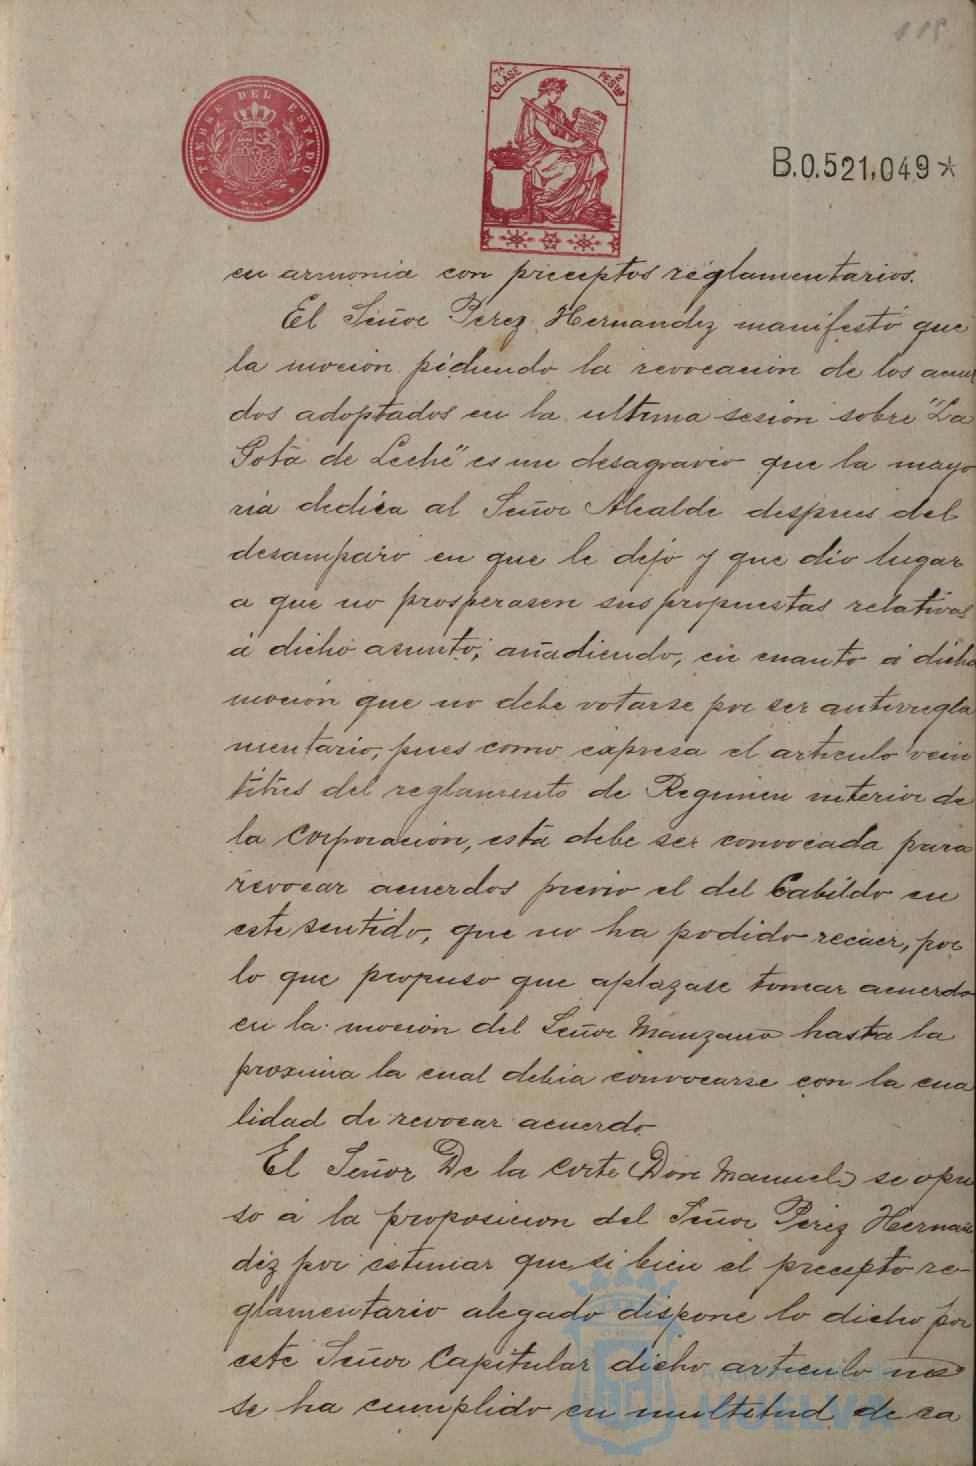 115
TIMBRE DEL ESTADO
7ª CLASE 2 PESTAS
B.0.521,049*
en armonia con preceptos reglamentarios.
El Señor Perez Hernandez manifestó que
la moción pidiendo la revocación de los acuer
dos adoptados en la ultima sesión sobre "La
Gota de Leche" es un desagravio que la mayo
ria dedica al Señor Alcalde despues del
desamparo en que le dejo y que dio lugar
a que no prosperasen sus propuestas relativas
á dicho asunto; añadiendo, en cuanto á dicha
moción que no debe votarse por ser antirregla
mentario, pues como expresa el articulo vein
titres del reglamento de Regimen interior de
la Corporación, está debe ser convocada para
revocar acuerdos previo el del Cabildo en
este sentido, que no ha podido recaer, por
lo que propuso que aplazase tomar acuerdo
en la moción del Señor Manzano hasta la
proxima la cual debia convocarse con la cua
lidad de revocar acuerdo.
El Señor De la Corte (Don Manuel) se opu
so á la proposicion del Señor Perez Hernan
dez por estimar que si bien el precepto re-
glamentario alegado dispone lo dicho por
este Señor Capitular dicho articulo no
se ha cumplido en multitud de ca
Ayuntamiento de
HUELVA